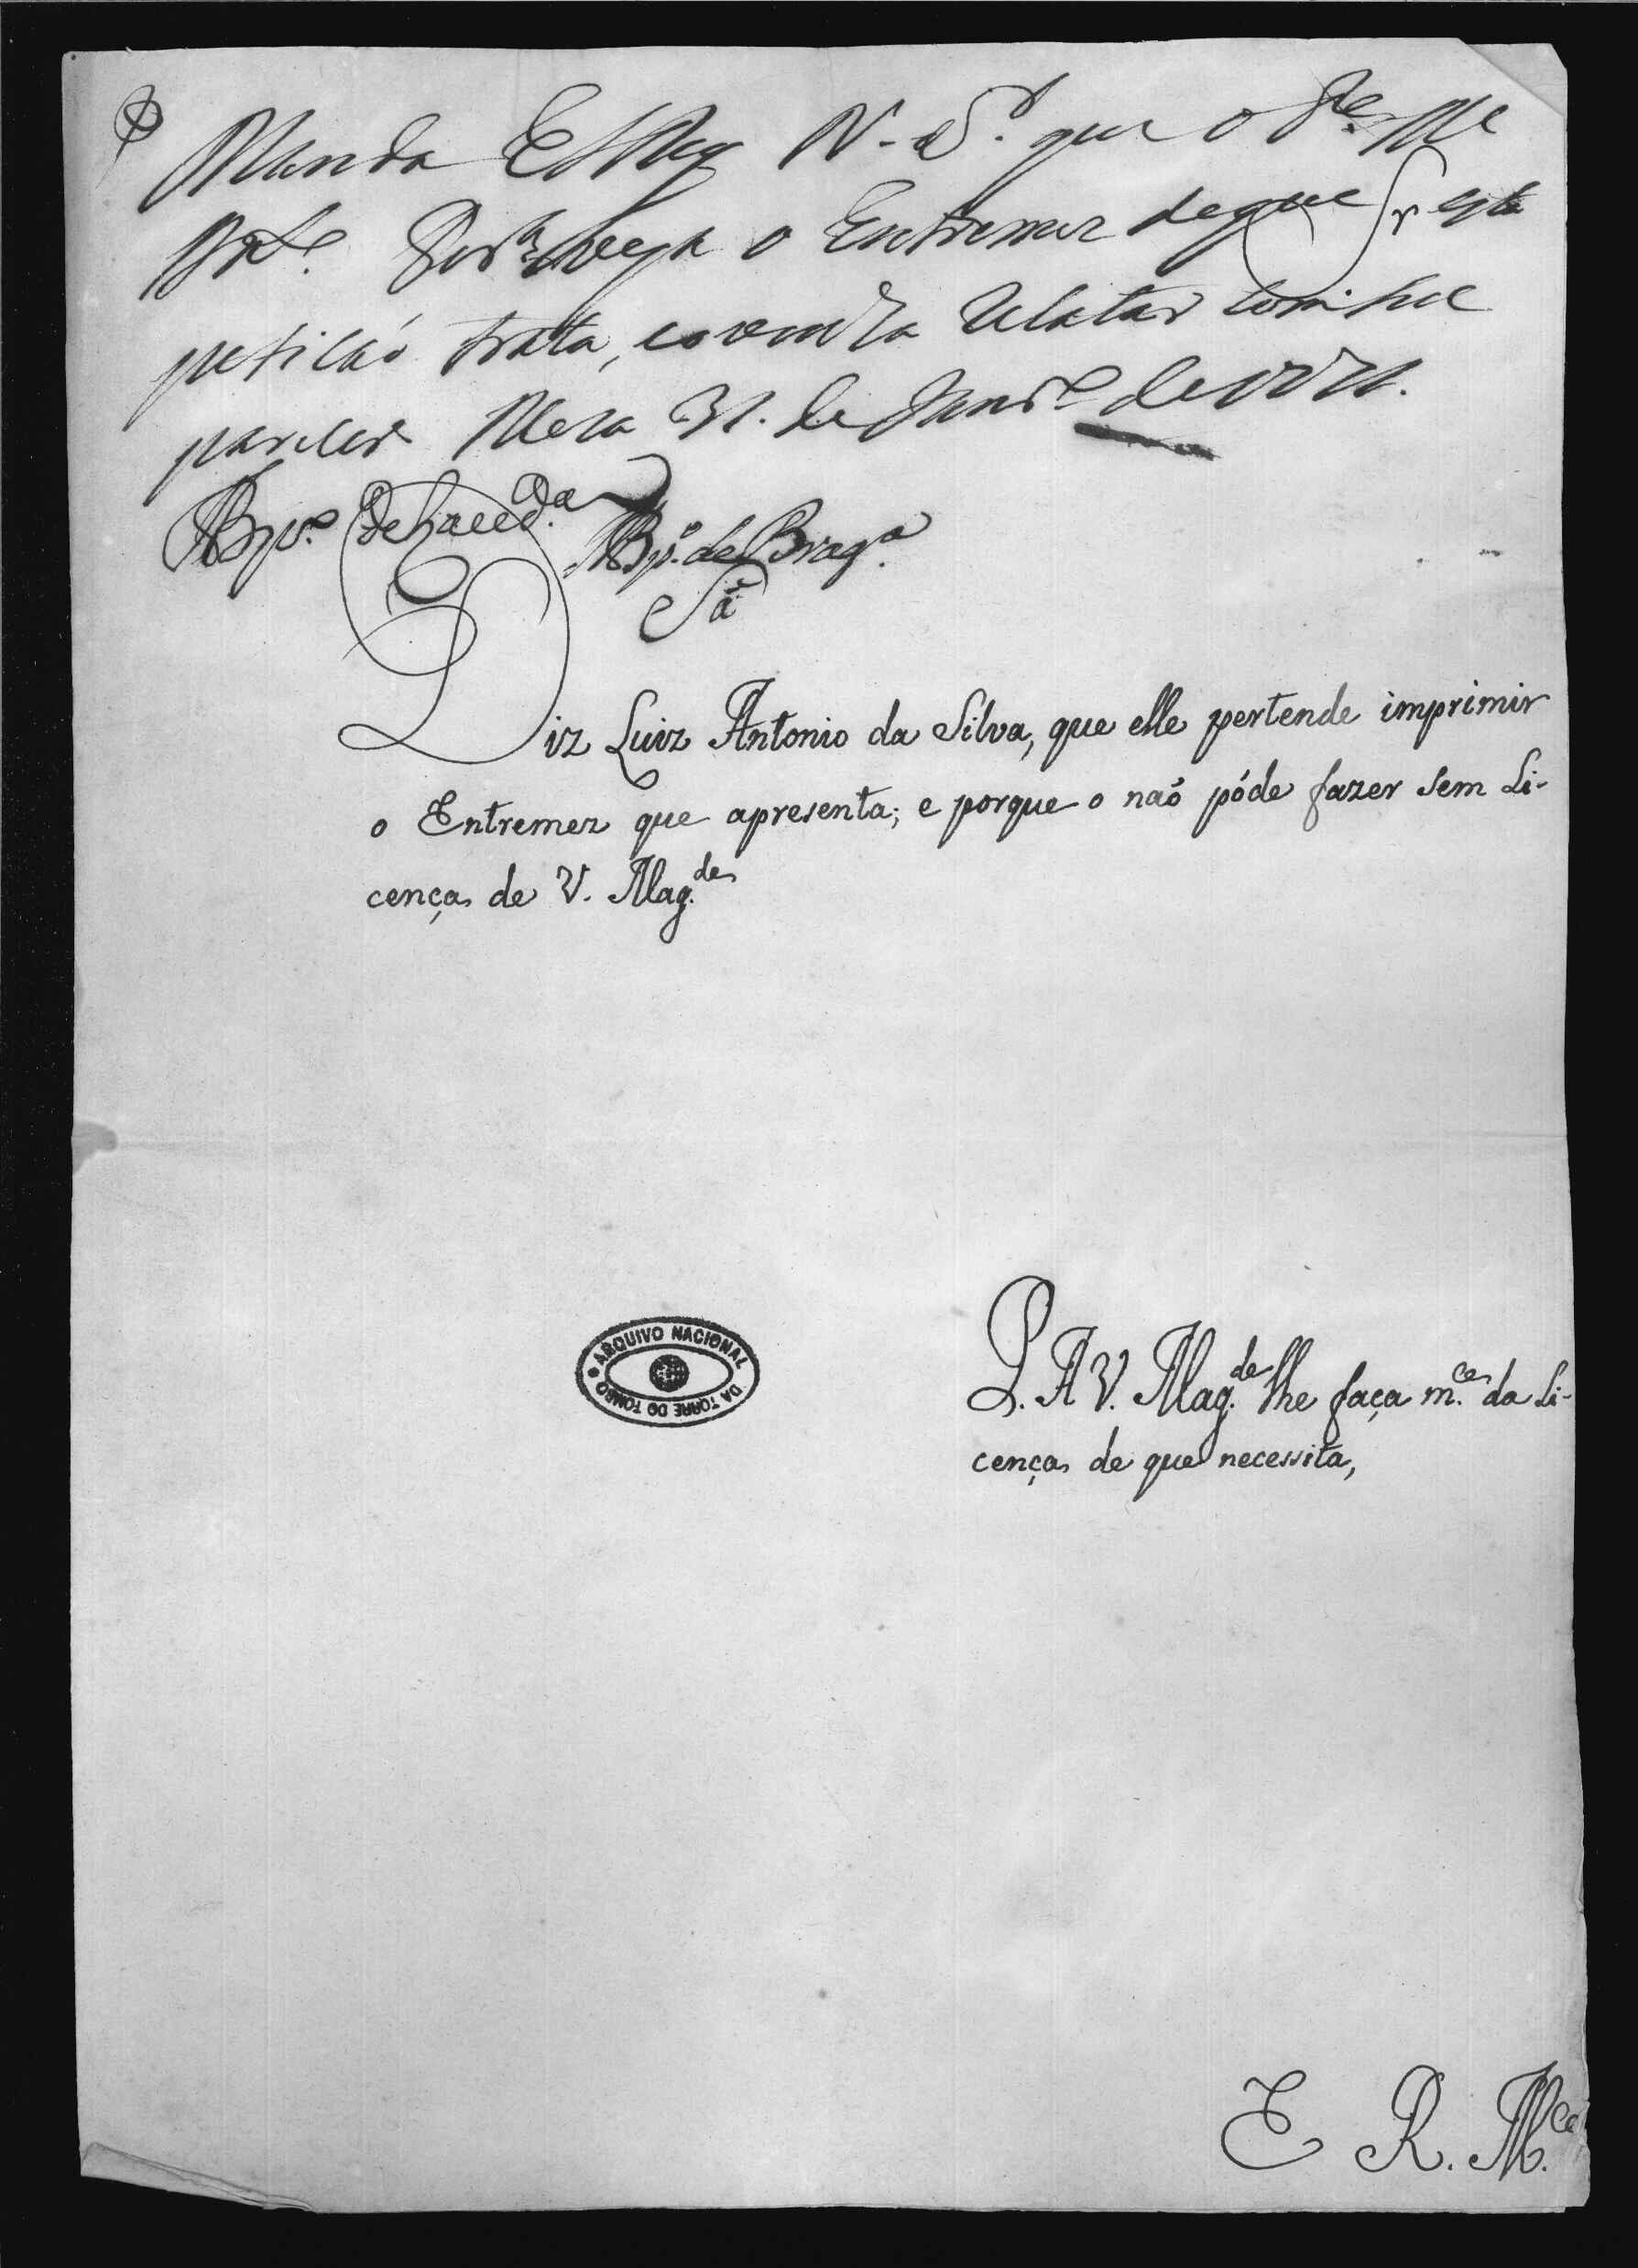 Manda ElRey N. S.r que o
veja o Entremez de que esta
petição trata, e o venha relatar com seu
parecer Meza 31. de Janr.o de
Bp.o de Laced.a
Bp.o de Brag.a
Sá
Diz Luiz Antonio da Silva, que elle pertende imprimir
o Entremez que apresenta; e porque o naõ póde fazer sem Li-
cença de V. Mag.de
P. A V. Mag.de lhe faça m.ce da Li-
cença de que necessita,
E R. M.ce
ARQUIVO NACIONAL DA TORRE DO TOMBO